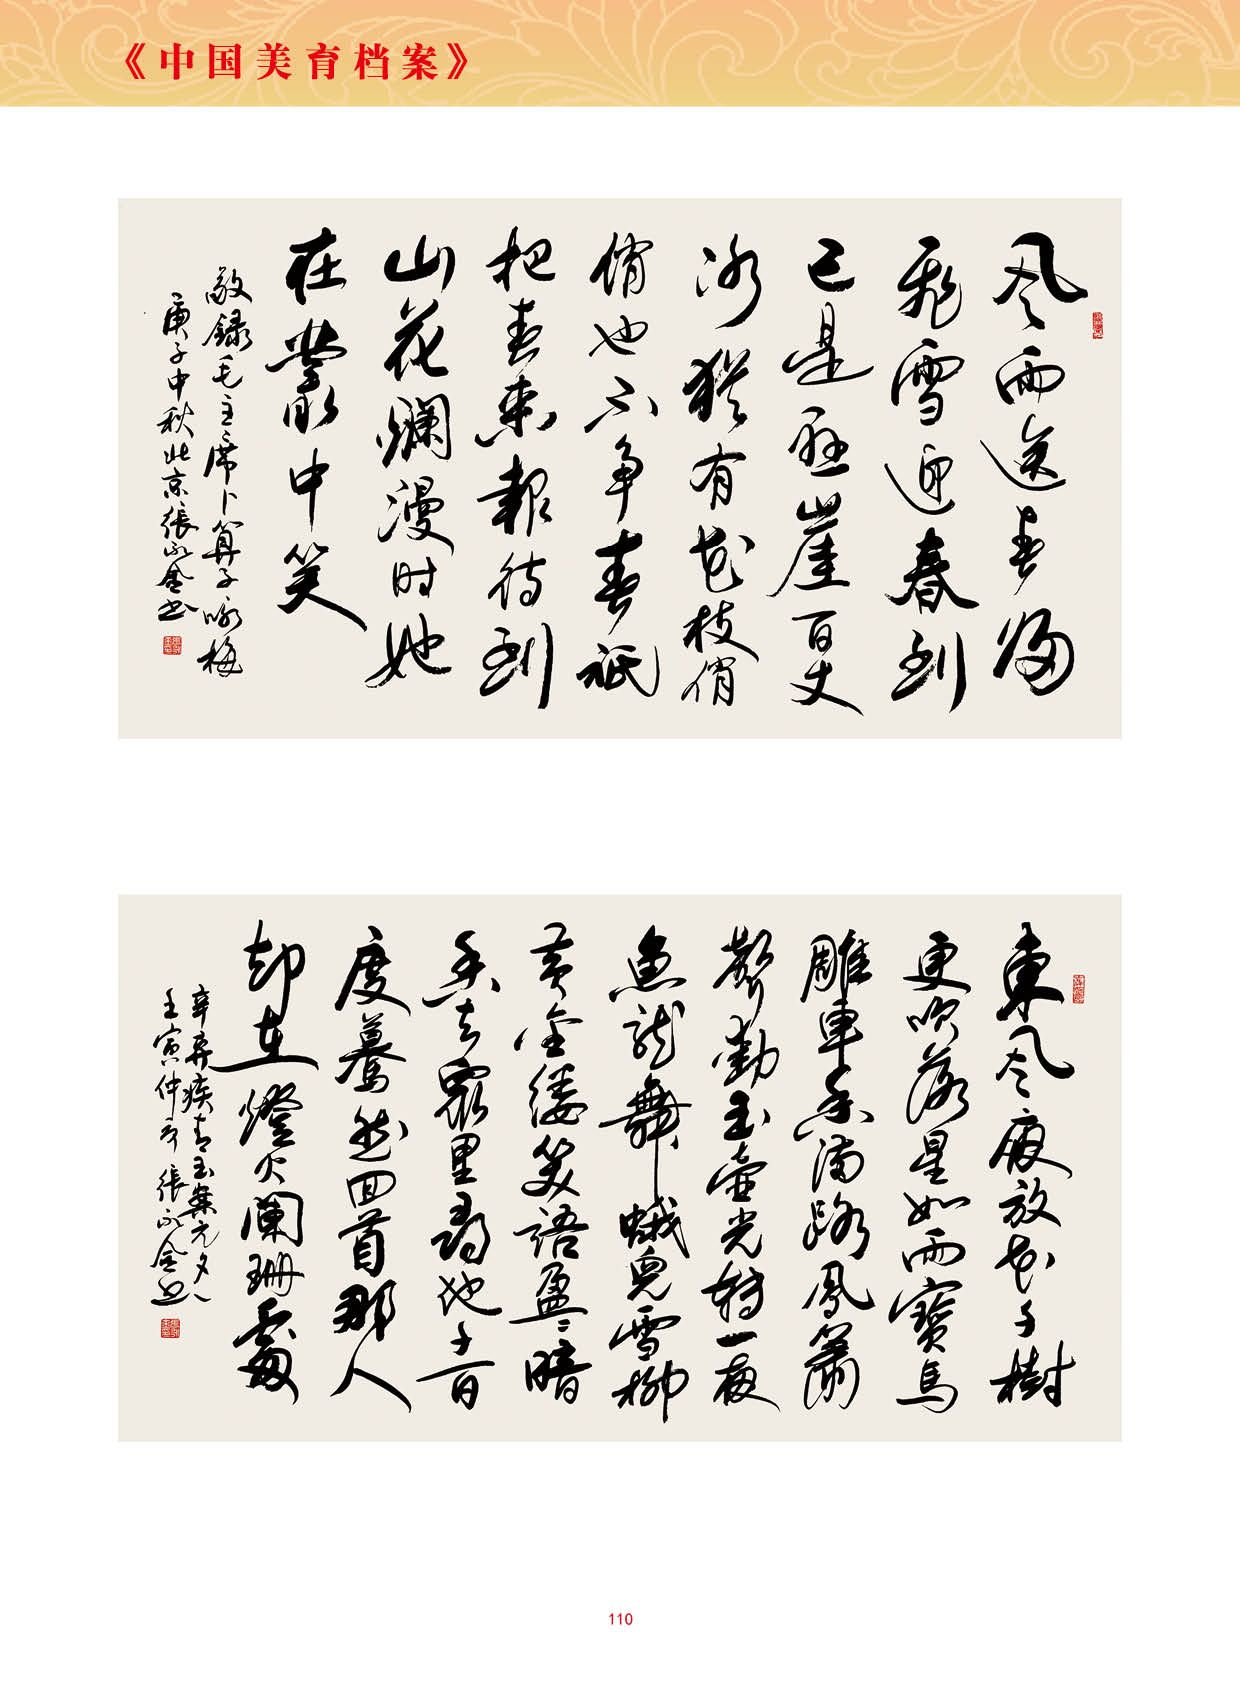 《中国美育档案》
风雨送春归
飛雪迎春到
已是懸崖百丈
冰犹有花枝俏
俏也不争春祇
把春来報待到
山花爛漫时她
在叢中笑
敬録毛主席卜算子咏梅
庚子中秋北京張永金书
東风夜放花千樹
更吹落星如雨寶馬
雕車香满路鳳簫
聲動玉壺光轉一夜
魚龍舞蛾兒雪柳
黄金缕笑語盈盈暗
香去衆里尋他千百
度驀然回首那人
却在燈火闌珊處
辛弃疾青玉案元夕
壬寅仲 張永金书
110